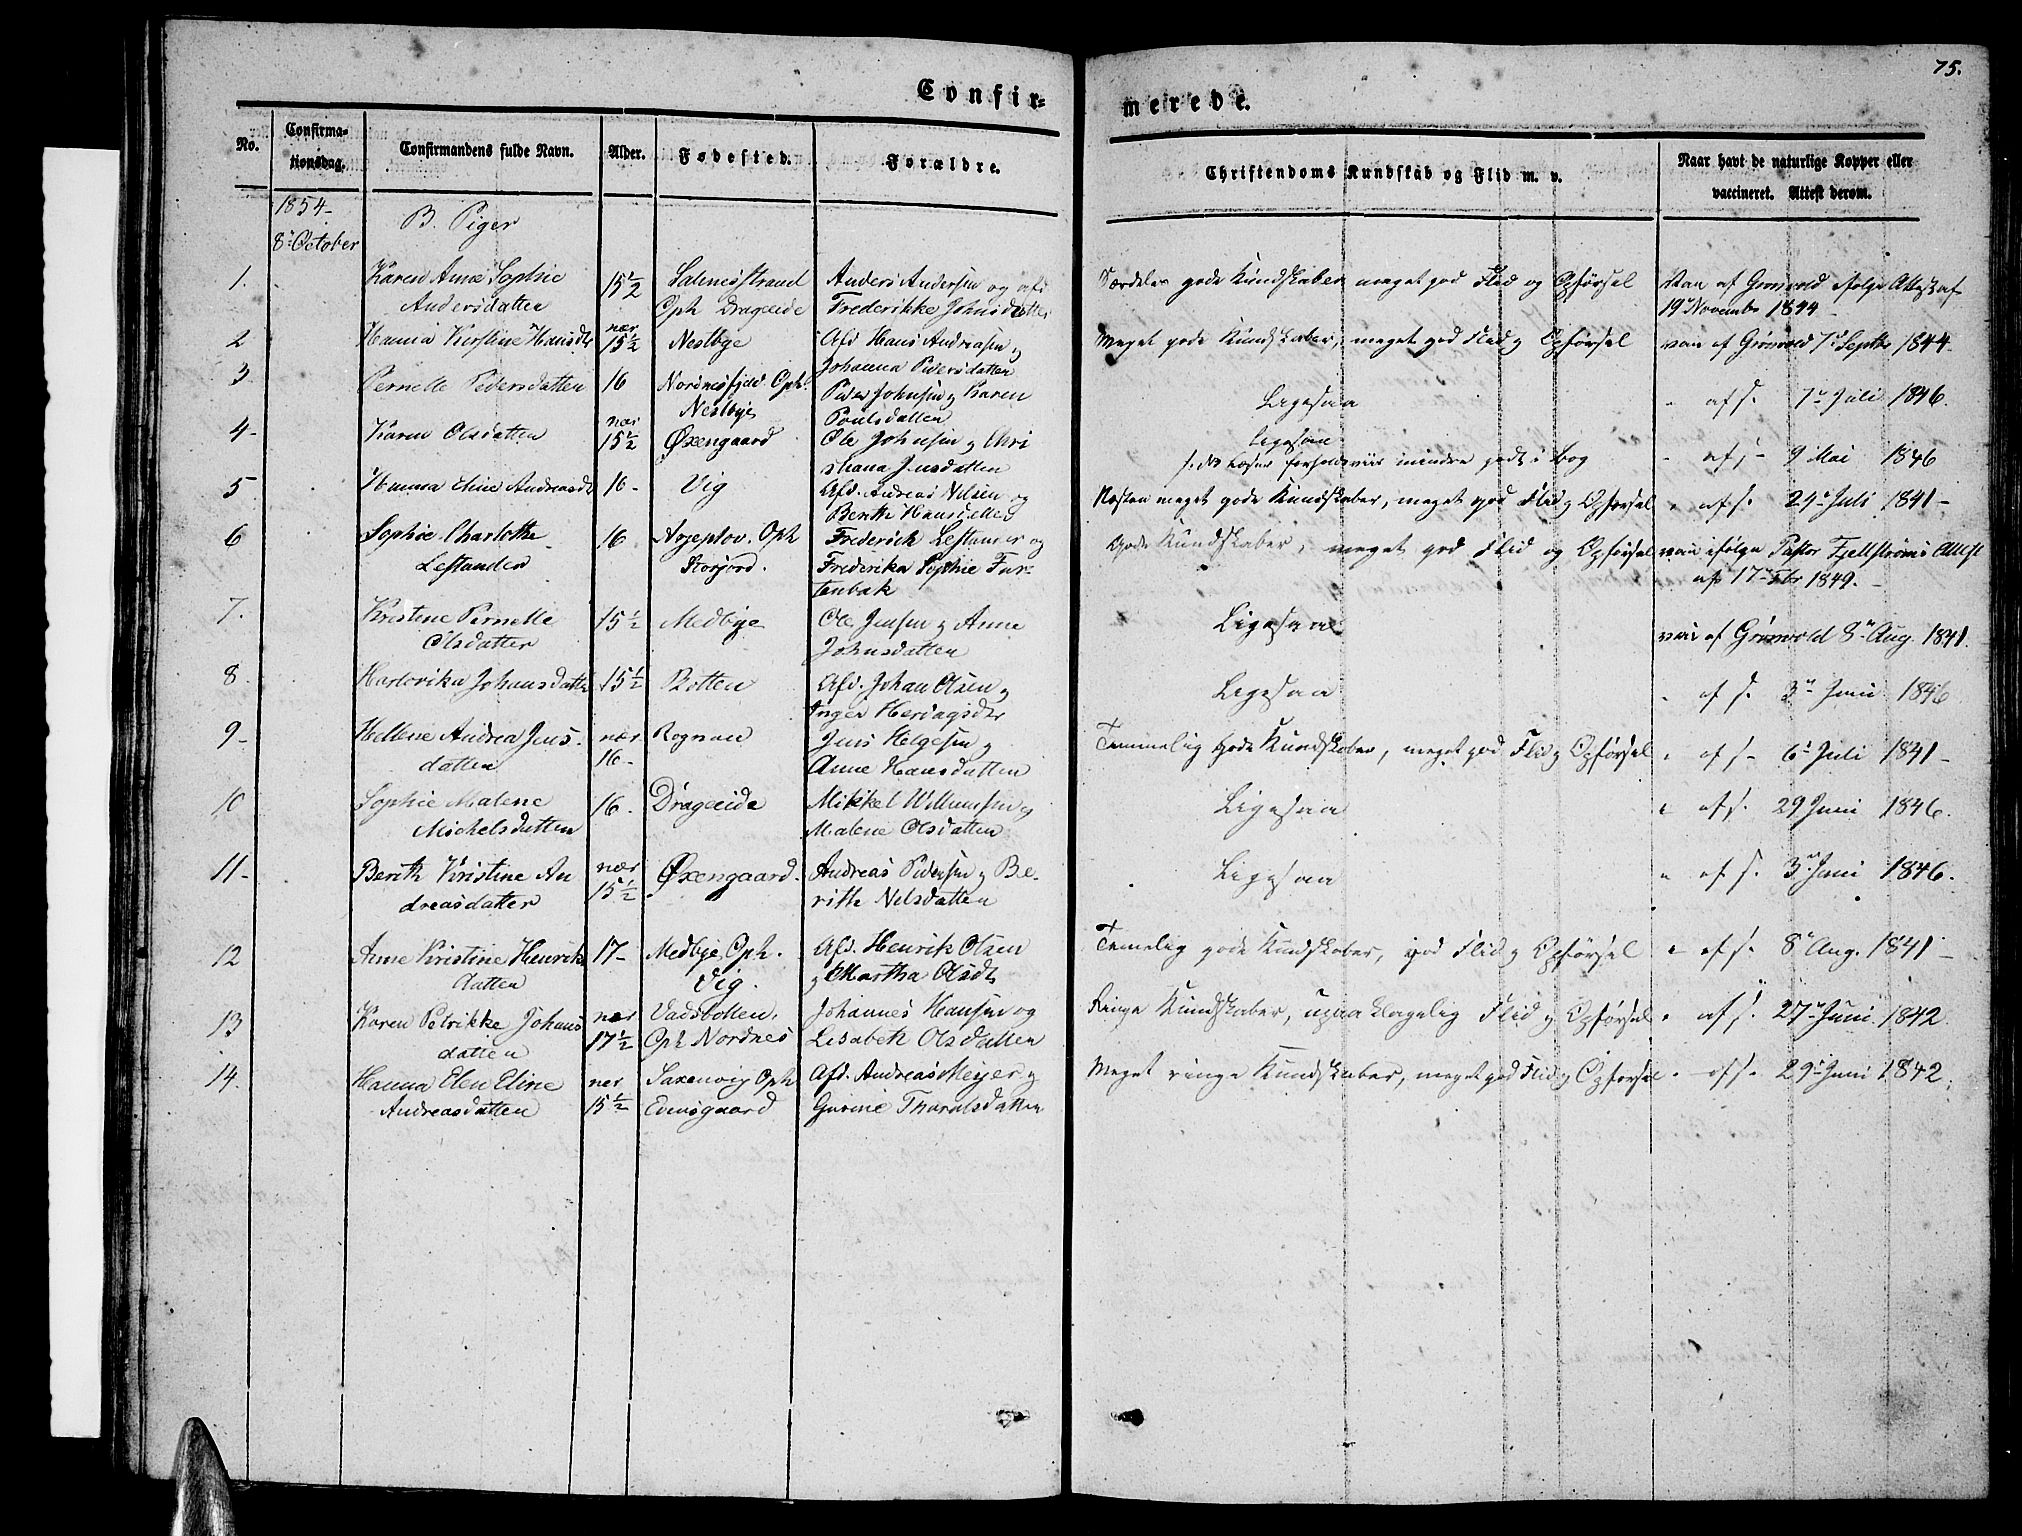 75.
Confir-
merede.
No.
Confirma-
tionsdag.
Confirmandens fulde Navn.
Alder.
Fødested.
Forældre.
Christendoms Kundskab og Flid m. v.
Naar havt de naturlige Kopper eller
vaccineret. Attest derom.
1854-
8de October
B. Piger
1. Karen Anne Sophie 15½ Saltnesstrand Anders Andersen og afd Særdeles gode Kundskaber meget god Flid og Opførsel Van af Grønvold ifølge Attest af
Andersdatter Oph Drageide Frederikke Johnsdatter 19 Novembr 1844
2 Hanna Kirstine Hansdtr nær 15½ Nestbye Afd Hans Andreasen og Meget gode Kundskaber, meget god Flid og Opførsel vac af Grønvold 7de Septbr 1844-
Johanna Pedersdatter
3 Pernelle Pedersdatter 16 Nordnesfjeld Oph: Peder Johnsen og Karen Ligesaa " af s. 7de Juli 1846.
Nestbye Poulsdatter
4- Karen Olsdatter nær 15½ Øxengaard Ole Johnsen og Chri Ligesaa " af s- 9 Mai 1846
stiana Jensdatter mindre godt i Bog
5 Hanna Eline Andreasdtr 16- Vig Afd. Andreas Nilsen og Næsten meget gode Kundskaber, meget god Flid og Opførsel " af s. 24de Juli 1841-
Berith Hansdatter
6 Sophie Charlotte 16 Arjeplov. Oph Frederick Lestander og Gode Kundskaber, meget god Flid og Opførsel vac ifølge Pastor Fjellstrøms Attest
Lestander Storjord. Frederika Sophie Fur- af 17de Fbr 1849.-
tenbak
7. Kristine Pernelle 15½ Medbye Ole Jensen og Anne Ligesaa vac af Grønvold 8de Aug. 1841.
Olsdatter Johnsdatter
8 Hartvika Johansdatter 15½ Botten Afd. Johan Olsen og Ligesaa " af s. 3de Juni 1846
Inger Hertagsdtr
9- Hellene Andrea Jens- nær 16- Rognan Jens Helgesen og Temmelig gode Kundskaber, meget god Flid og Opførsel " af s- 6te Juli 1841-
datter Anne Hansdatter
10 Sophie Malene 16- Drageide Mikkel Willumsen og Ligesaa " af s. 29 Juni 1846.
Michelsdatter Malene Olsdatter
11- Berith Kristine An nær 15½ Øxengaard. Andreas Pedersen og Be- Ligesaa " af s. 3de Juni 1846.
dreasdatter rithe Nelsdatter
12 Anne Kristine Henrik 17- Medbye, Oph. Afd. Henrik Olsen Temelig gode Kundskaber, god Flid og Opførsel " af s. 8de Aug. 1841-
datter Vig. og Martha Olsdtr
13 Karen Petrikke Johans nær 17½ Vadsbotten, Johannes Hansen og Ringe Kundskaber, upaaklagelig Flid og Opførsel " af s. 27de Juni 1842.
datter Oph Nordnes Lisabeth Olsdatter
14. Hanna Elen Eline nær 15½ Saxenvig Oph Afd. Andreas Meyer og Meget ringe Kundskaber, meget god Flid og Opførsel " af s. 29de Juni 1842.
Andreasdatter Evensgaard Gurine Tharalsdatter